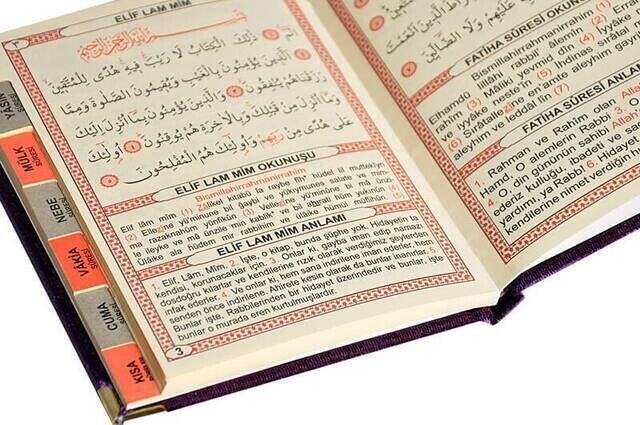 ELİF LAM MİM
٣
الٓمٓ ذٰلِكَ الْكِتَابُ لَا رَيْبَ فِيهِ هُدًى لِلْمُتَّقِينَ
اَلَّذِينَ يُؤْمِنُونَ بِالْغَيْبِ وَيُقِيمُونَ الصَّلٰوةَ وَمِمَّا
رَزَقْنَاهُمْ يُنْفِقُونَ وَالَّذِينَ يُؤْمِنُونَ بِمَا اُنْزِلَ اِلَيْكَ
وَمَا اُنْزِلَ مِنْ قَبْلِكَ وَبِالْاٰخِرَةِ هُمْ يُوقِنُونَ اُولٰئِكَ
عَلٰى هُدًى مِنْ رَبِّهِمْ وَاُولٰئِكَ هُمُ الْمُفْلِحُونَ
ELİF LAM MİM OKUNUŞU
Bismillahirrahmanirrahim
Elif lâm mîm (1) Zâlikel kitabü lâ raybe fîh hüdel lil muttekîyn
(2) Ellezîne yü'minune bil ğaybi ve yükıymunes salate ve mim-
ma razaknahüm yünfikûn (3) Vellezîne yü'minûne bi mâ ünzi-
le ileyke ve mâ ünzile min kablik ve bil âhırati hüm yukınûn (4)
Ülâike ala hüdem mir rabbihim ve ülâike hümül müflihûn (5)
ELİF LAM MİM ANLAMI
1. Elif, Lâm, Mîm, 2. İşte, o kitap, bunda şüphe yok. Hidayetin ta
kendisi, korunacaklar için. 3. Onlar ki, gayba iman edip namazı
dosdoğru kılarlar ve kendilerine rızık olarak verdiğimiz şeylerden
infak ederler. 4. Ve onlar ki, hem sana indirilene iman ederler, hem
senden önce indirilene. Ahirete kesin olarak da bunlar inanırlar. 5.
Bunlar işte, Rabbilerinden bir hidayet üzerindedir ve bunlar, işte
bunlar o murada eren kurtulmuşlardır.
3
YASİN
MÜLK
SÛRESİ
NEBE
SÛRESİ
VAKIA
SÛRESİ
CUMA
KISA
عَلَيْهِمْ وَلَا الضَّالِّينَ
FATİHA SÛRESİ OKUNU
Bismillahirrahmanirrahim (1)
Elhamdü lillahi rabbil' âlemîn (2)
(3) Mâliki yevmid dîn (4) İyyâke
ve iyyâke neste'în (5) İhdinas sırâtal
(6) Sırâtallezîne en'amte aleyhim gayri
aleyhim ve leddâl lîn (7)
FATİHA SÛRESİ ANLA
Rahman ve Rahîm olan Alla
Hamd, O alemlerin Rabbi
4. O din gününün sahibi Allah
ederiz kulluğu, ibadeti ve se
yardımı, ya Rab! 6. Hidayet e
kendilerine nimet verdiğin m